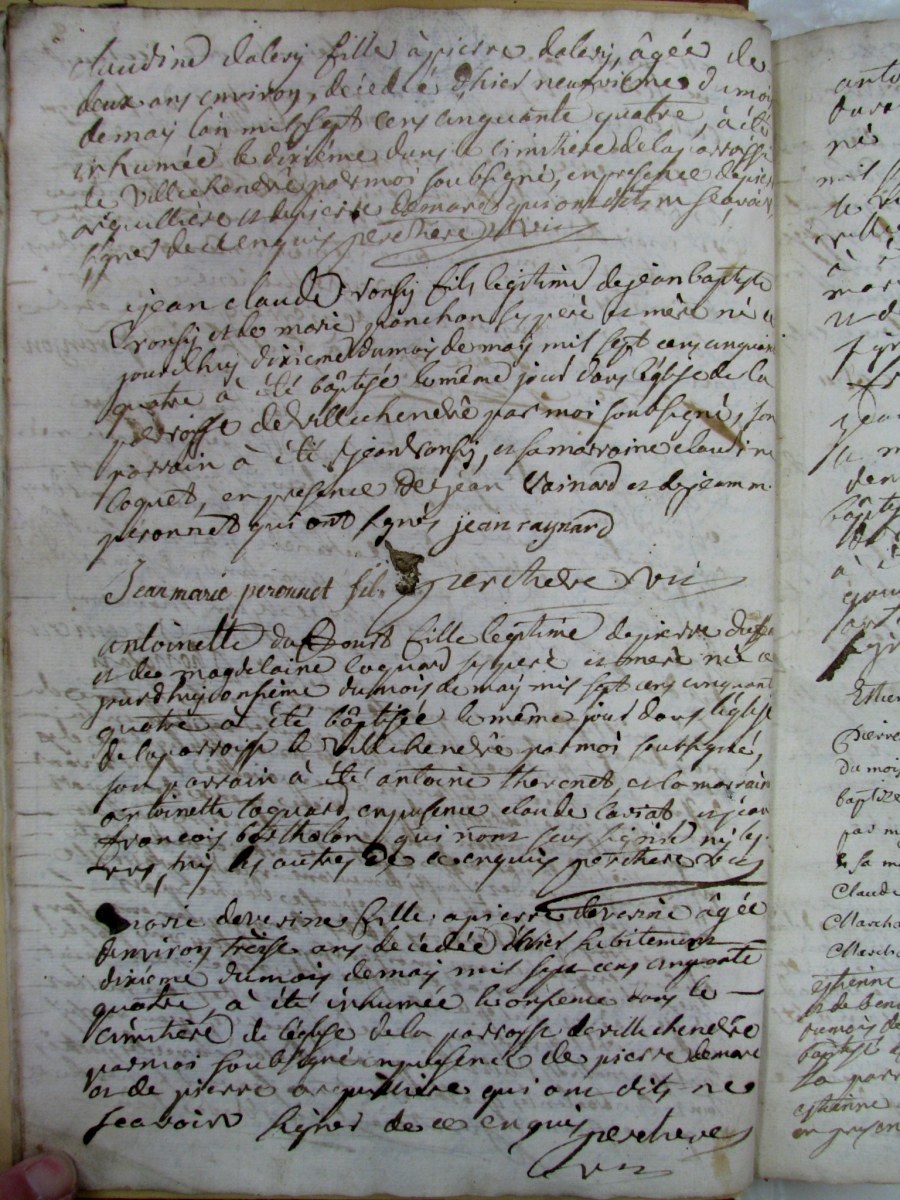 claudine dalery fille à pierre dalery, âgée de
deux ans environ, décédée d'hier neufvieme du mois
de may l'an mil sept cens cinquante quatre, à été
inhumée le dixiéme dans le cimitiere de la parroisse
de villechenéve par moi soubsigné, en presence de pierre
arquilliere et de pierre demare qui ont dits ne sçavoir
signer de ce enquis percherè vic
jean claude ronsy fils légitime de jean baptiste
ronsy et de marie ponchon ses pere et mere né a
jourdhuy dixieme du mois de may mil sept cens cinquante
quatre à été bâptisé le même jour dans l'église de la
parroisse de villechenéve par moi soubsigné, son
parrain à été jean ronsy, et sa marraine claudine
coquet, en presence de jean rainard et de jean m.
peronnet qui ont signés jean raynard
Jean marie peronnet fils percherè vic
antoinette fille legitime de pierre
et de magdelaine coquard ses pere et mere née a
jourdhuy onsieme du mois de may mil sept cens cinquante
quatre à été bâptisée le même jour dans l'église
de la parroisse de villechenéve par moi soubsigné,
son parrain à été antoine thevenet, et la marraine
antoinette coquard, en presence claude et jean
françois bertholon qui n'ont sçus signer ny les
uns, ny les autres de ce enquis percherè vic
marie deverine fille à pierre deverine âgée
d'environ treise ans décédée d'hier subitement
dixieme du mois de may mil sept cens cinquante
quatre, à été inhumée le onsieme dans le
cimitiére de l'église de la parroisse de villechenéve
par moi soubsigné en presence de pierre demare
et de pierre arquilliere qui ont dits ne
scavoir signer de ce enquis percherè
vic
anto
né
mil
ville
à
et de
jean
la m
bâptis
à é
Estien
Pierre
Du mois
baptize
par m
& sa ma
Claude
Marcha
Marcha
estienne
et de ben
du mois de
baptisé
la parr
estienne
en presen